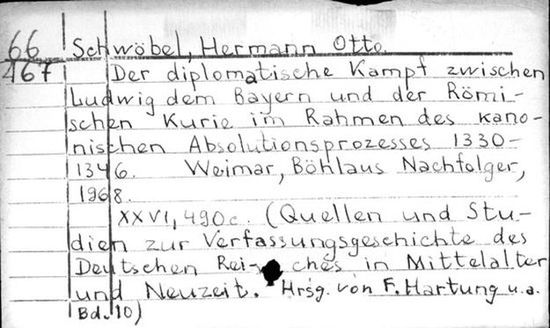 66 Schwöbel, Hermann Otto
467 Der diplomatische Kampf zwischen
Ludwig dem Bayern und der Römi-
schen Kurie im Rahmen des kano-
nischen Absolutionsprozesses 1330-
1346. Weimar, Böhlaus Nachfolger,
1968.
XXVI, 490c. (Quellen und Stu-
dien zur Verfassungsgeschichte des
Deutschen Rei-ches in Mittelalter
und Neuzeit. Hrsg. von F. Hartung u.a.
Bd. 10)